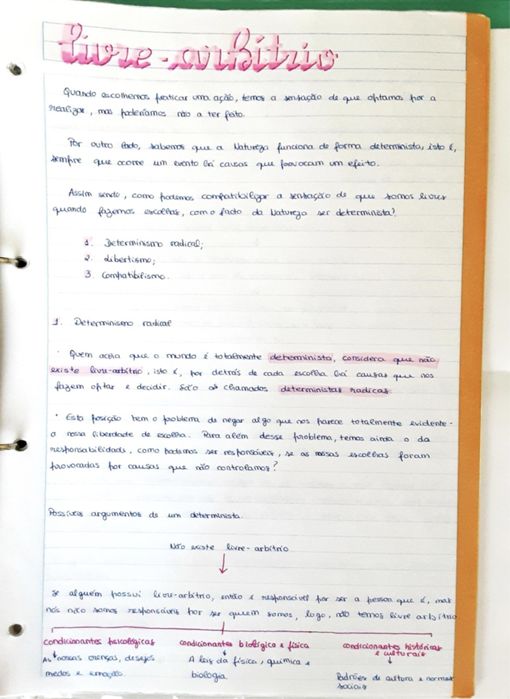 livre-arbítrio
Quando escolhemos praticar uma ação, temos a sensação de que optamos por a
realizar, mas poderíamos não a ter feito.
Por outro lado, sabemos que a Natureza funciona de forma determinista, isto é,
sempre que ocorre um evento há causas que provocam um efeito.
Assim sendo, como podemos compatibilizar a sensação de que somos livres
quando fazemos escolhas, com o facto da Natureza ser determinista?
1. Determinismo radical;
2. Libertismo;
3. Compatibilismo.
1. Determinismo radical
· Quem acha que o mundo é totalmente determinista, considera que não
existe livre-arbítrio, isto é, por detrás de cada escolha há causas que nos
fazem optar e decidir. São os chamados deterministas radicas.
· Esta posição tem o problema de negar algo que nos parece totalmente evidente -
a nossa liberdade de escolha. Para além desse problema, temos ainda o da
responsabilidade, como podemos ser responsáveis, se as nossas escolhas foram
provocadas por causas que não controlamos?
Possíveis argumentos de um determinista.
Não existe livre-arbítrio
Se alguém possui livre-arbítrio, então é responsável por ser a pessoa que é, mas
nós não somos responsáveis por ser quem somos, logo, não temos livre arbítrio
condicionantes psicológicas
As nossas crenças, desejos
medos e emoção
condicionantes biológica e física
A leis da física, química e
biologia.
condicionantes históricas
e culturais
Padrões de cultura e normas
sociais